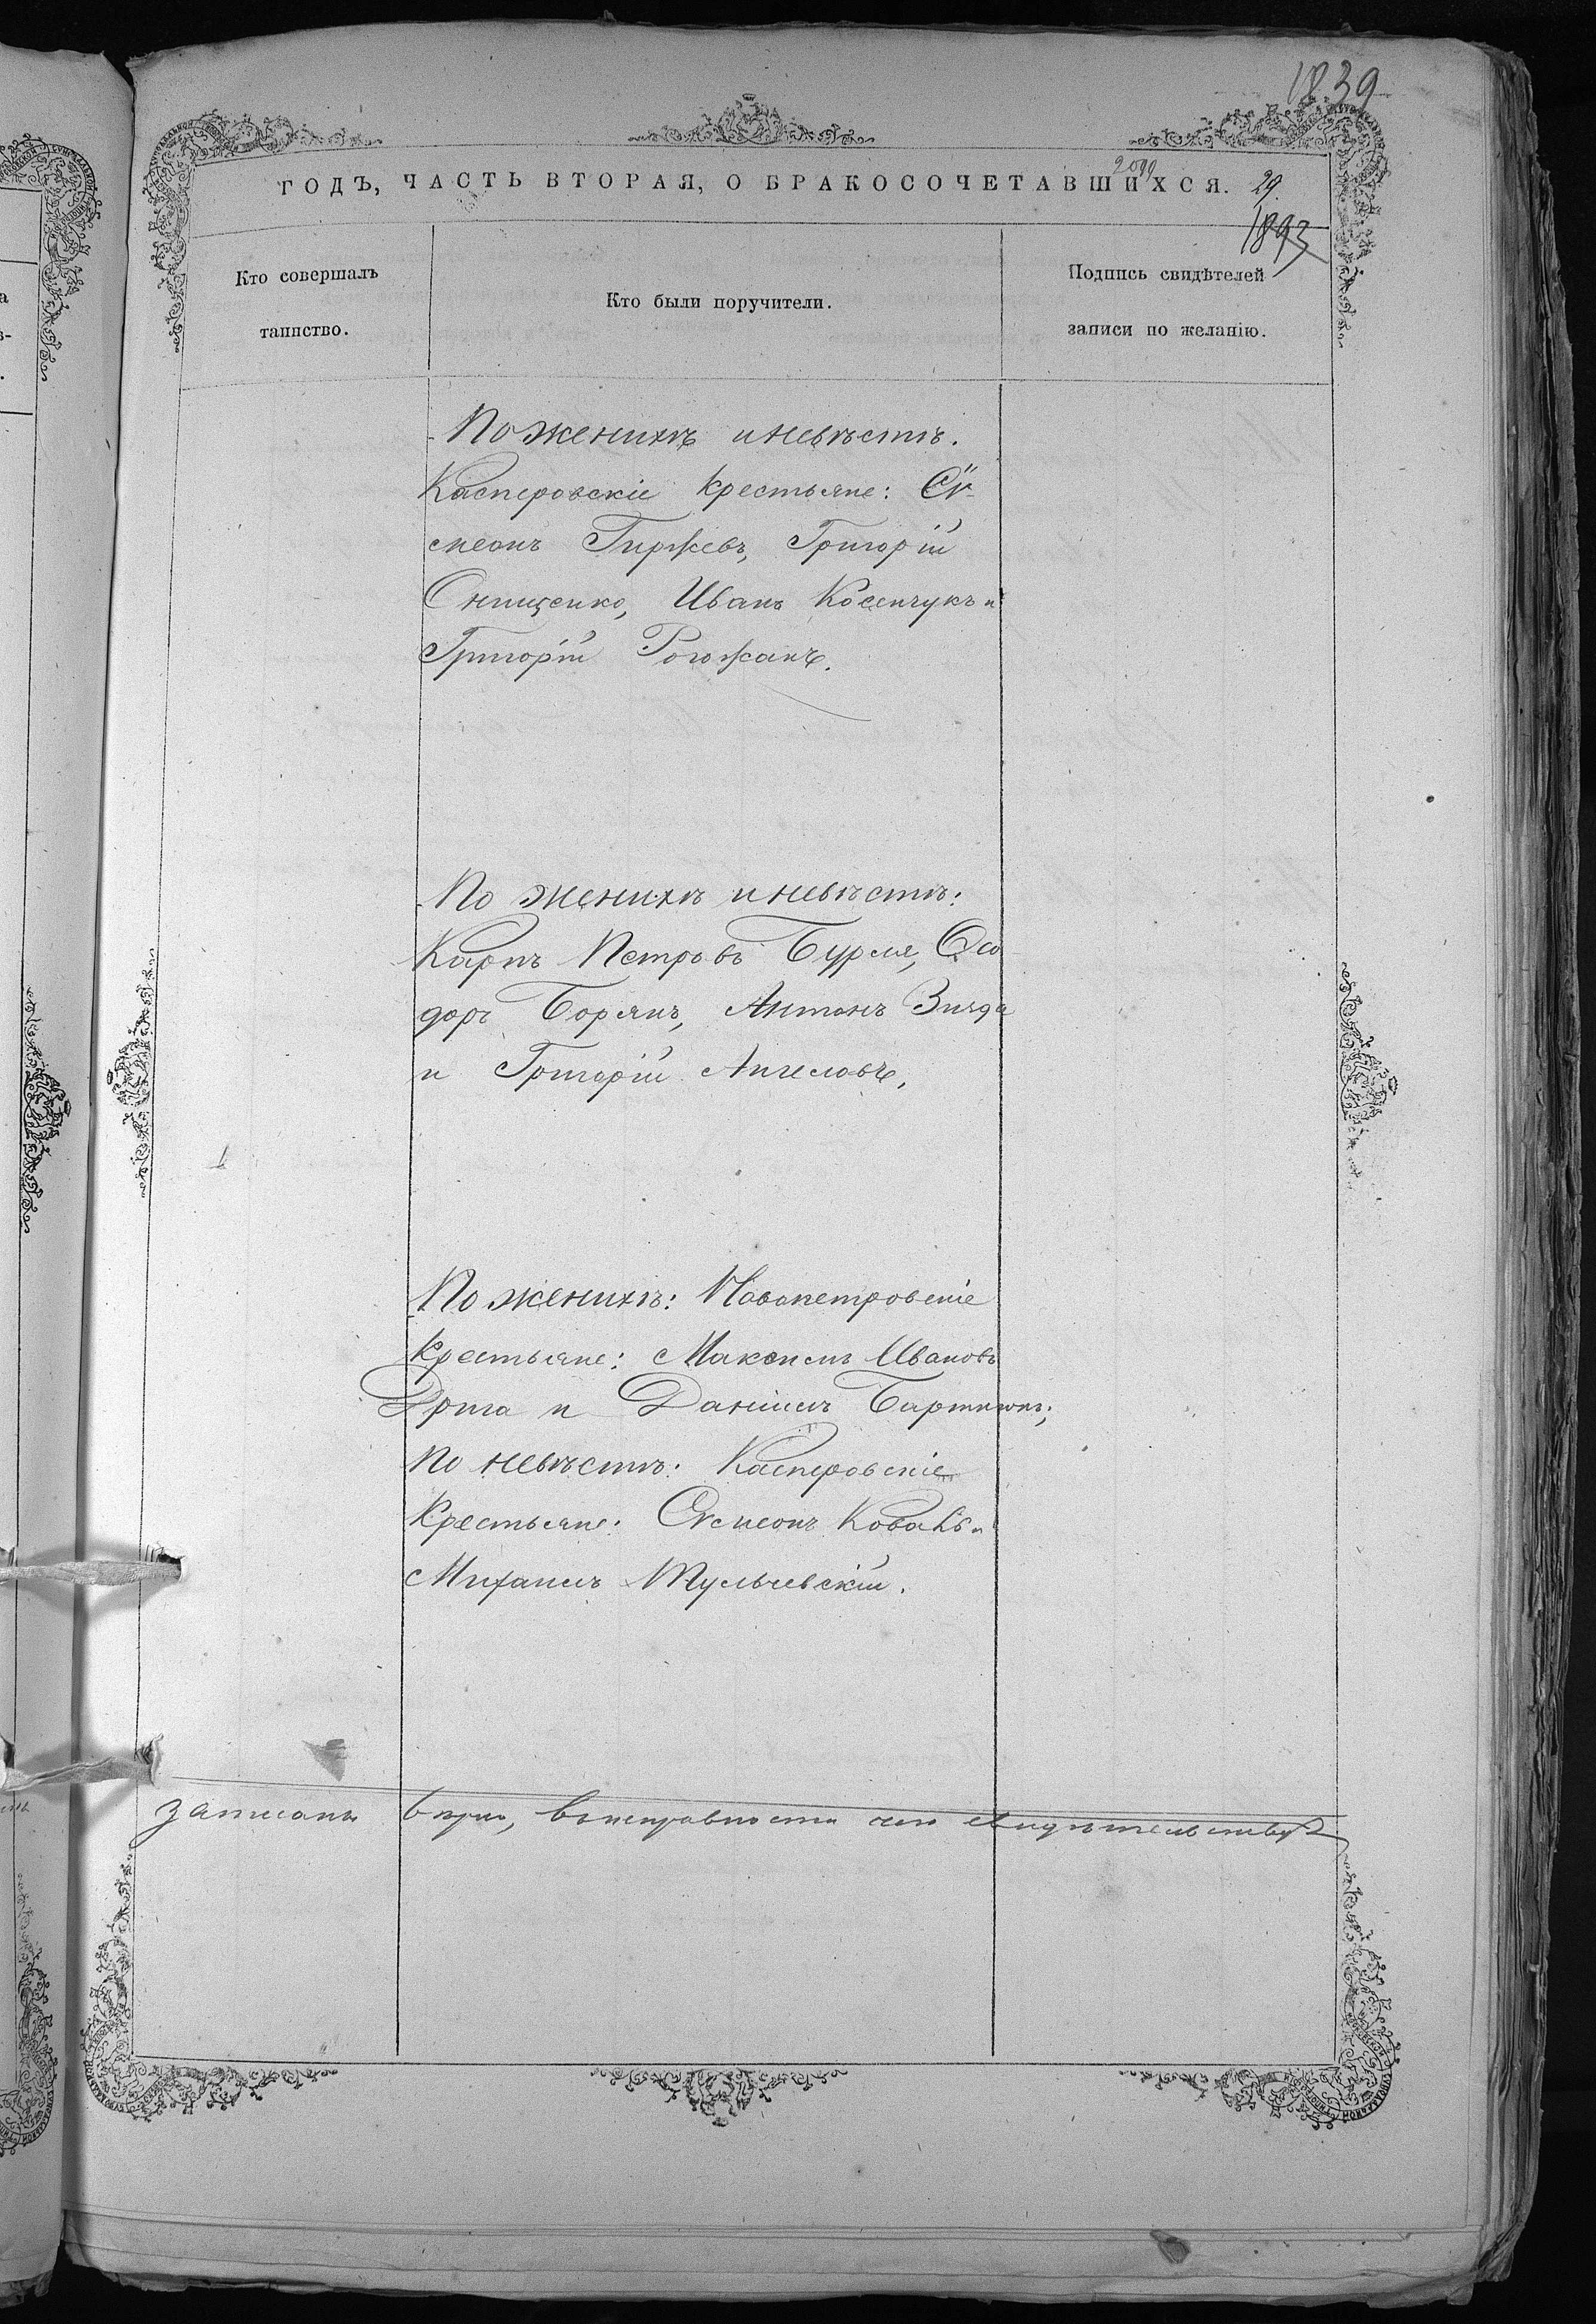 1839
ГОДЪ, ЧАСТЬ ВТОРАЯ, О БРАКОСОЧЕТАВШИХСЯ. 29.
1893
Кто совершалъ
таинство.
Кто были поручители.
Подпись свидѣтелей
записи по желанію.
По женихѣ и невѣстѣ.
Касперовскіе крестьяне: Сѵ-
меонъ Гиржевъ, Григорій
Онищенко, Иванъ Косенчукъ и
Григорій Рогожанъ.
По женихѣ и невѣстѣ:
Карпъ Петровъ Бурля, Ѳео
доръ Борянъ, Антонъ
и Григорій Ангеловъ.
По женихѣ: Новопетровскіе
крестьяне: Максимъ Ивановъ
Дрига и Даніилъ
По невѣстѣ: Касперовскіе
крестьяне: Сѵмеонъ Коваль и
Михаилъ Тульчевскій.
записанъ въ исправности чего свидѣтельствуя